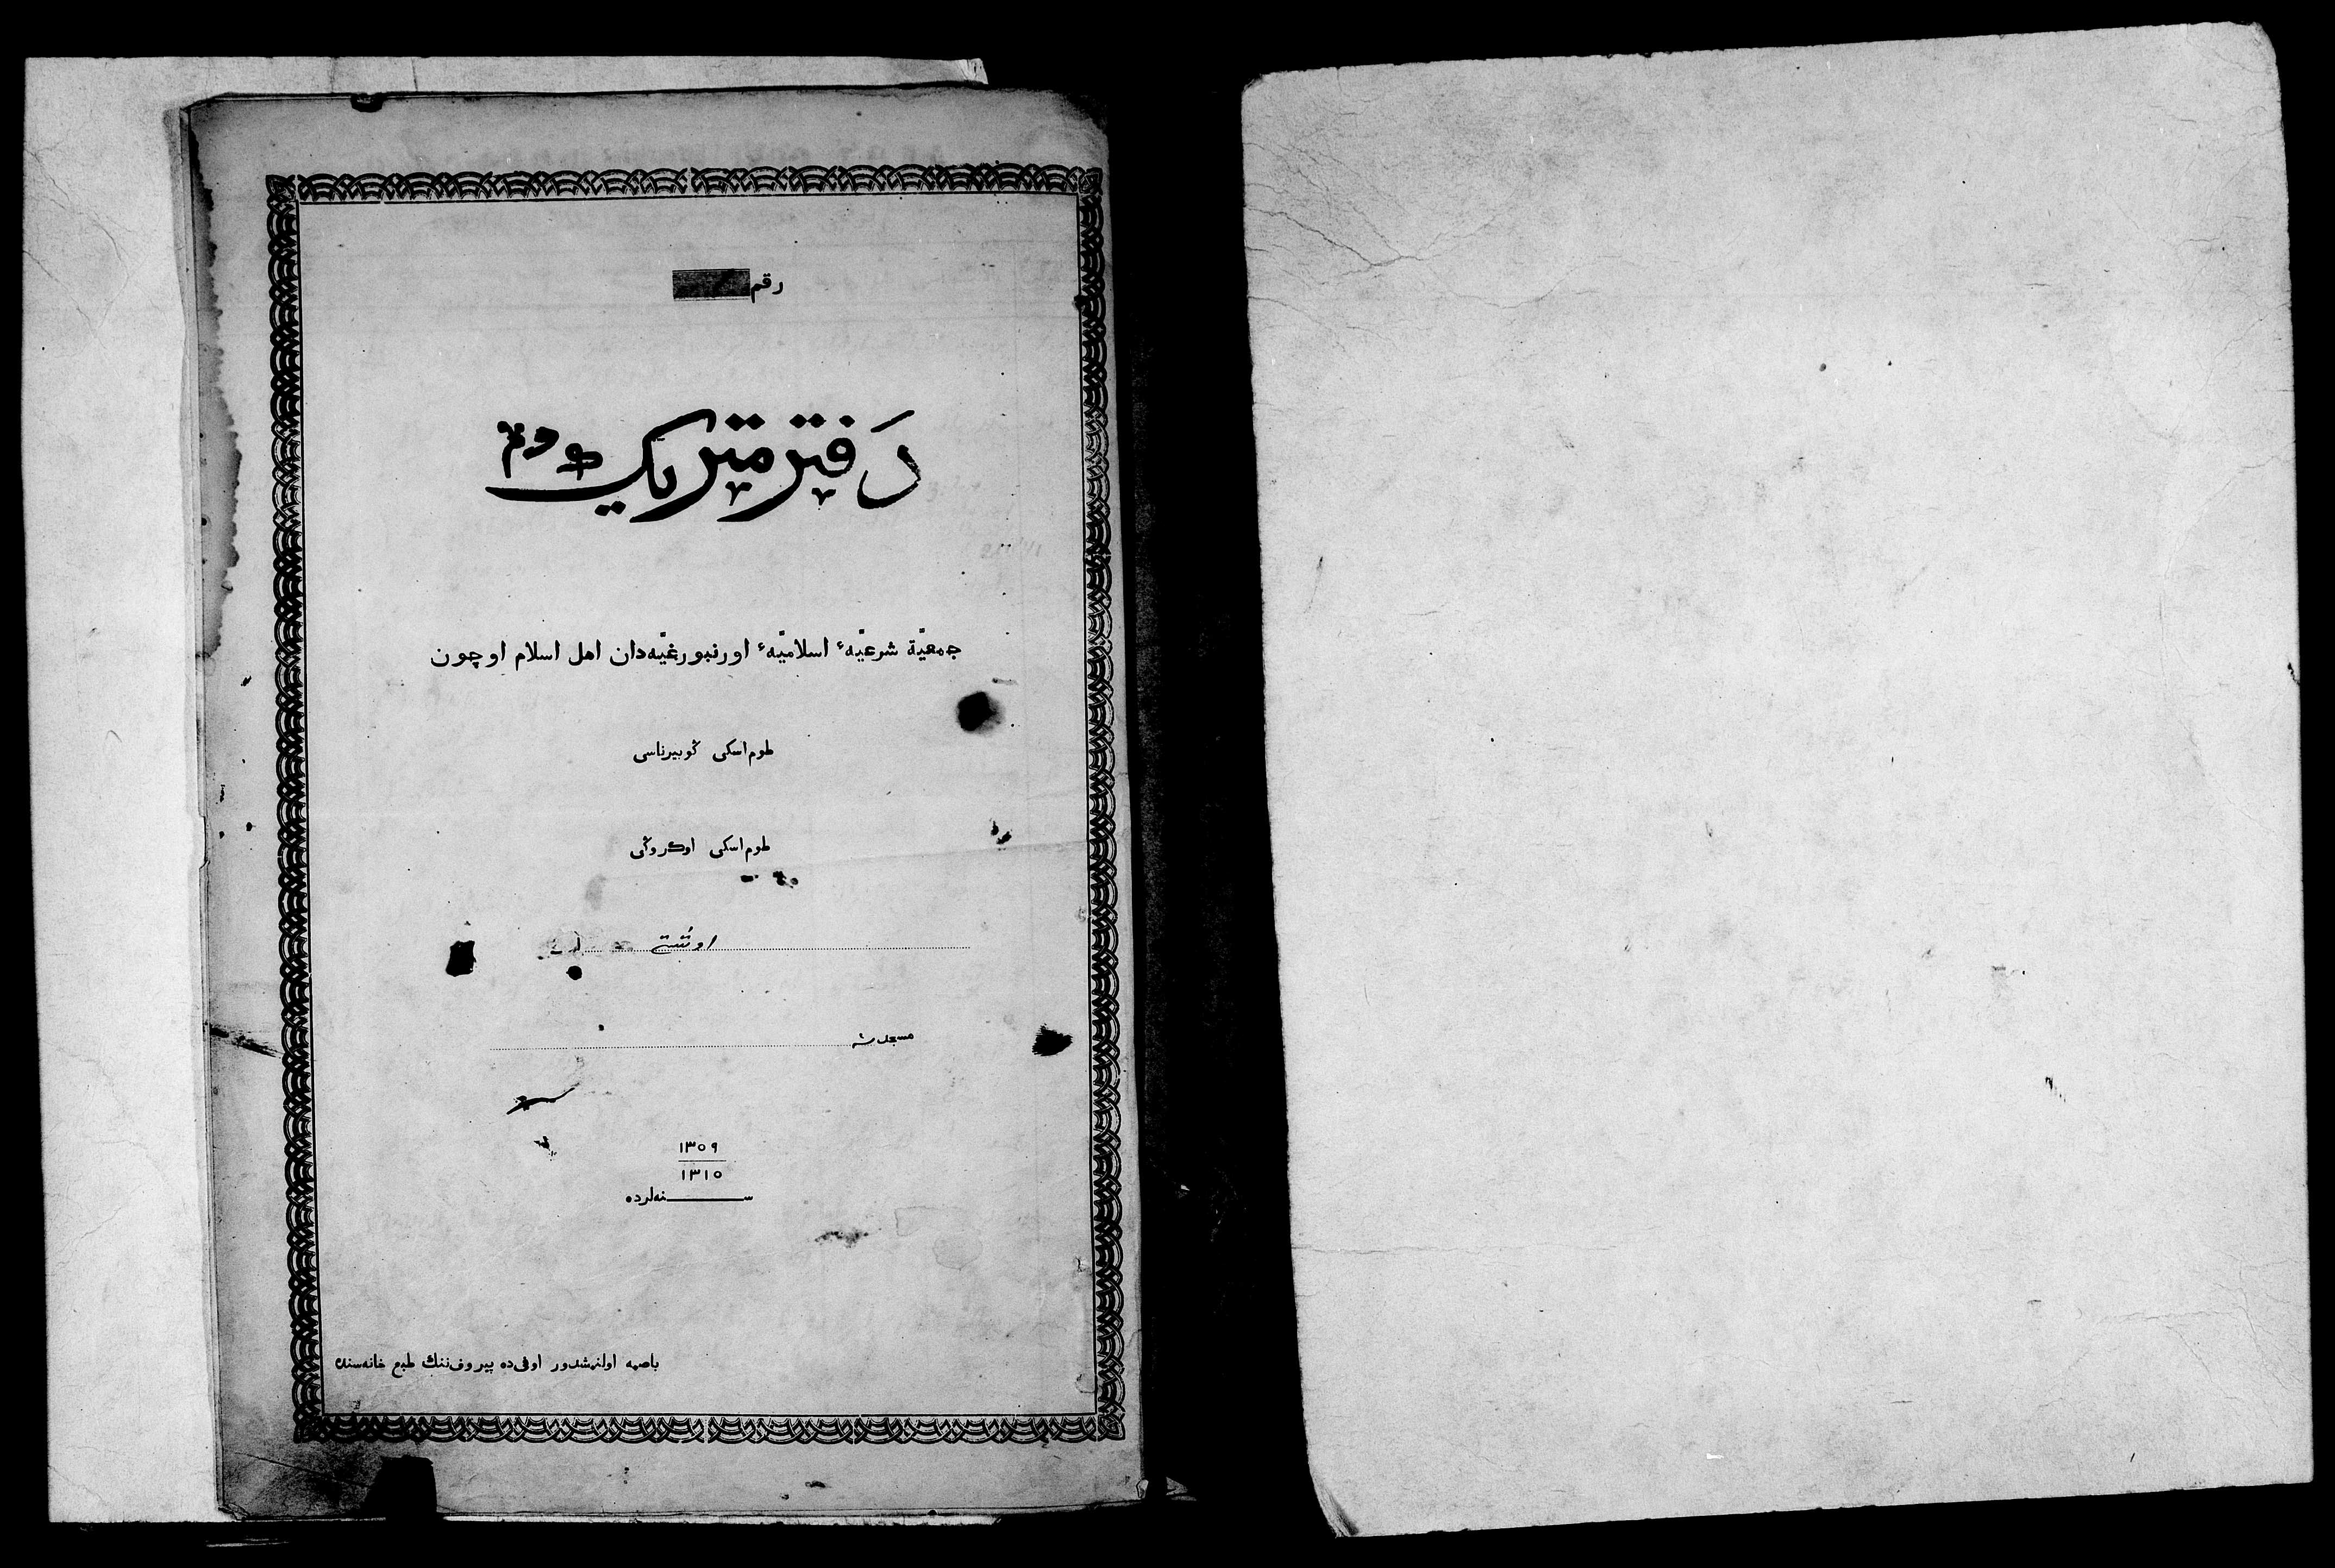 رقم
دفتر متریك
جمعیّة شرعیّهٔ اسلامیّهٔ اورنبورغیّه‌دان اهل اسلام اوچون
طوم‌اسکی ڭوبیرناسی
طوم‌اسکی اوکروڭی
مسجدینه
١٣٥٩
١٣١٥
سـنه‌لرده
باصمه اولنمشدور اوفی‌ده پیروف‌ننك طبع خانه‌سنده